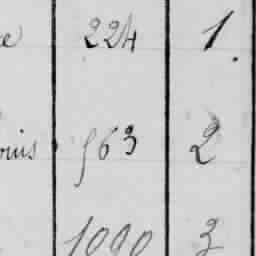 e 224 1.
ouis 563 2
1090 3